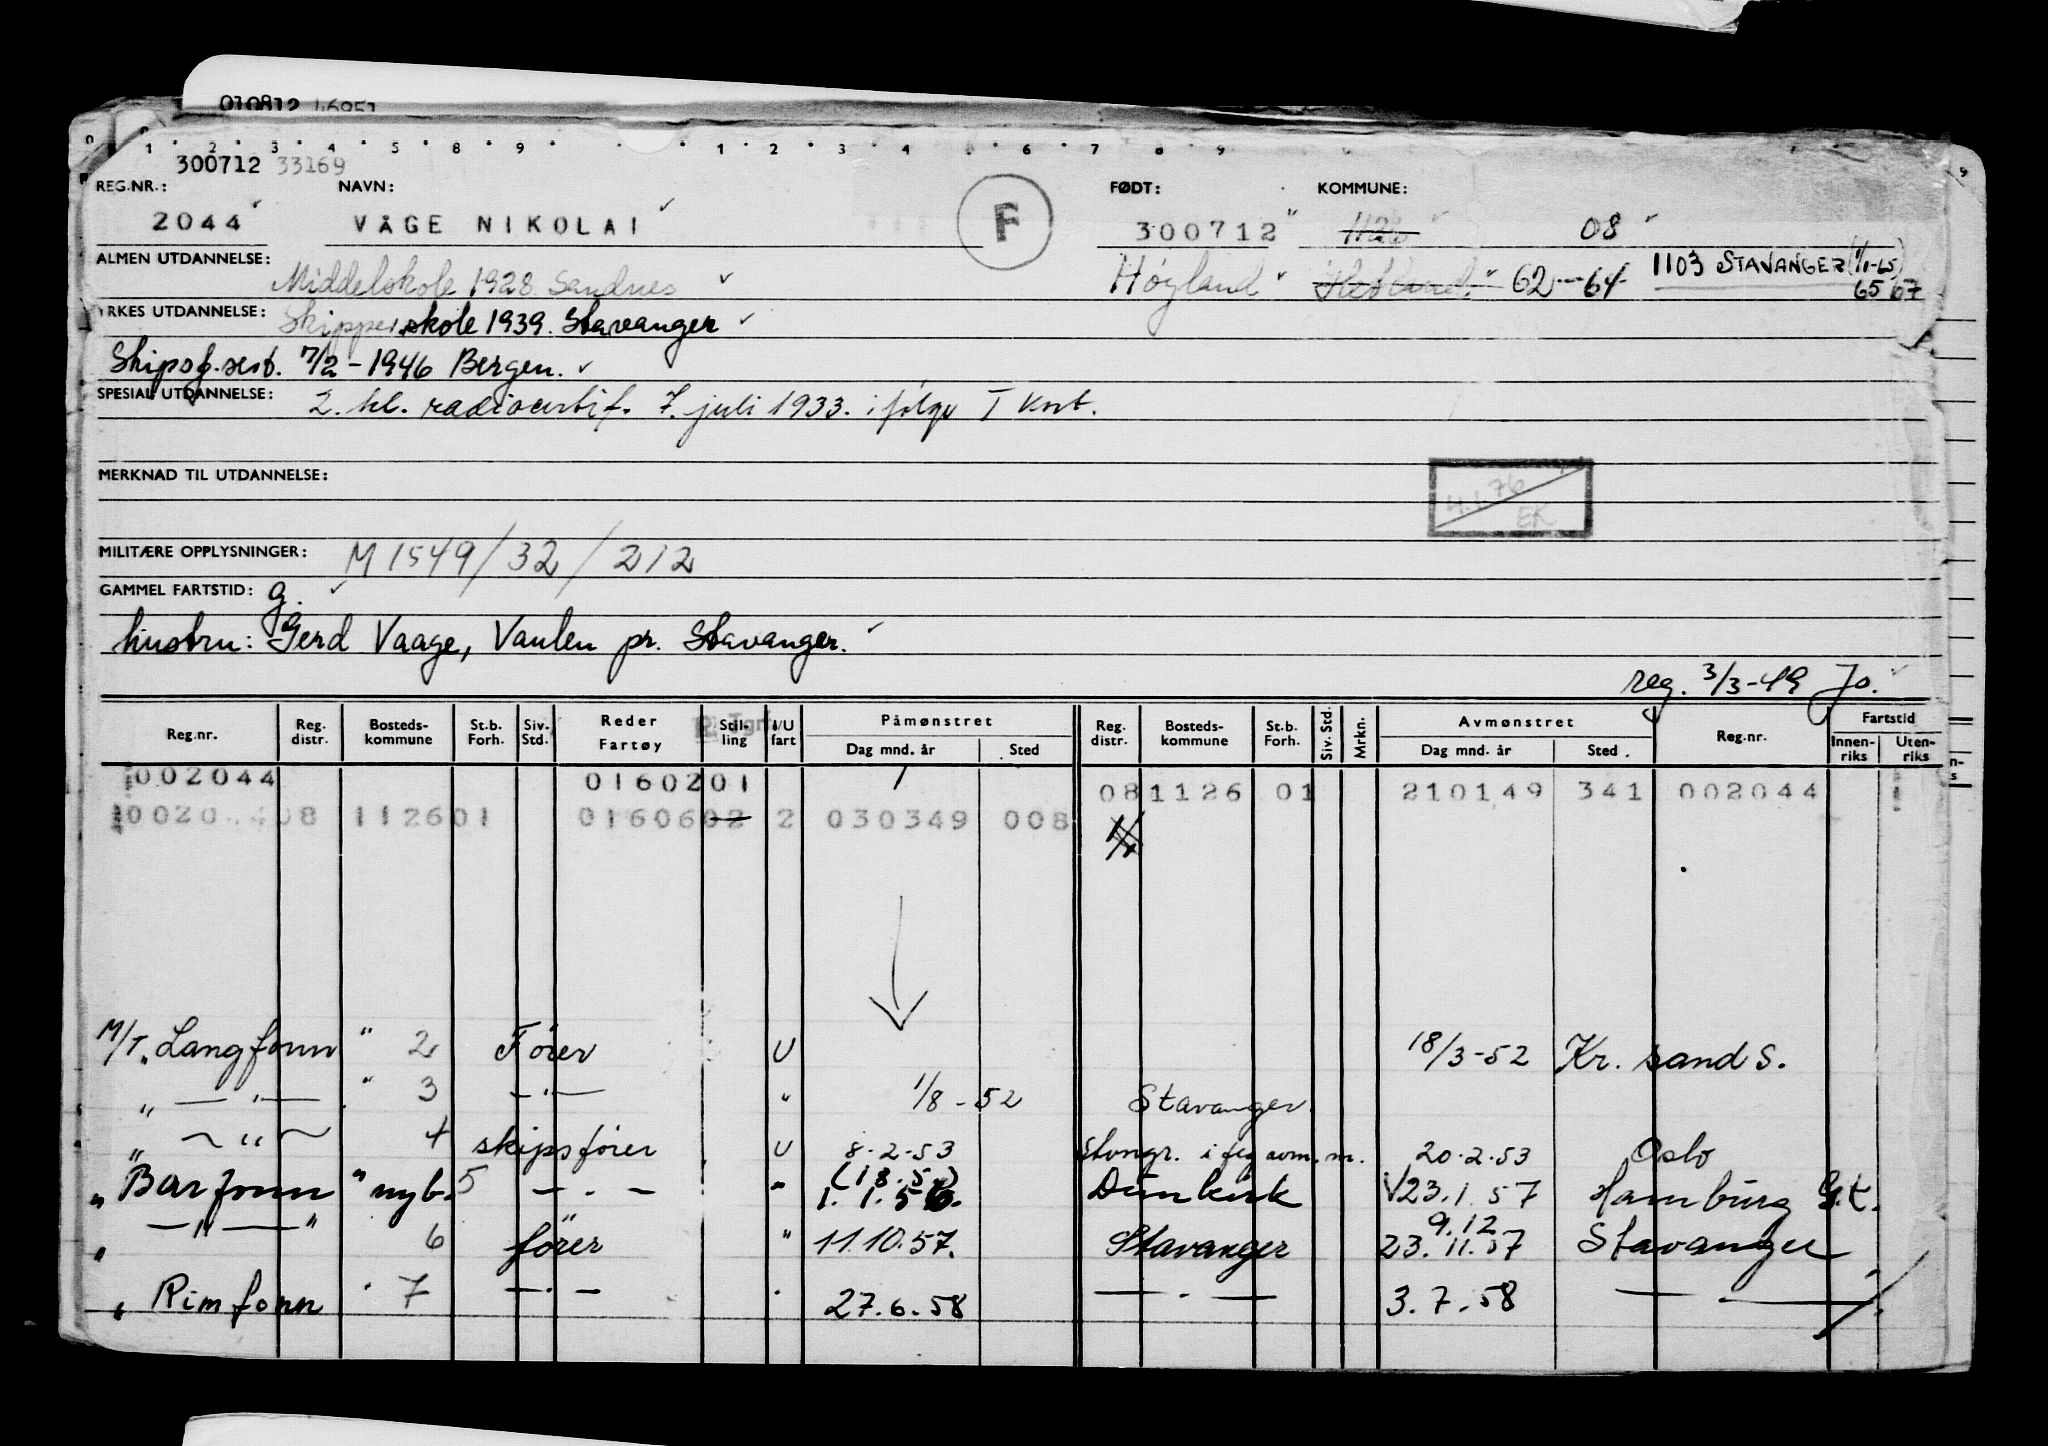 300712 33169
REG.NR.: NAVN: FØDT: KOMMUNE:
2044 VÅGE NIKOLAI F 300712 08
ALMEN UTDANNELSE: Middelskole 1928. Sandnes Høyland 62-64 1103 STAVANGER (1/1-65)
65 67
YRKES UTDANNELSE: Skipperskole 1939. Stavanger
Skipsf.sert. 7/2-1946 Bergen.
SPESIAL UTDANNELSE: 2. kl. radiosertif. 7. juli 1933. ifølge I kort.
MERKNAD TIL UTDANNELSE:
EK
MILITÆRE OPPLYSNINGER: M 1549/32/212
GAMMEL FARTSTID: g.
hustru: Gerd Vaage, Vaulen pr. Stavanger.
reg. 3/3-49 Jo.
Reg.nr. Reg. distr. Bosteds-kommune St.b. Forh. Siv. Std. Reder Fartøy Stil-ling I/U fart Påmønstret Dag mnd. år Sted Reg. distr. Bosteds-kommune St.b. Forh. Siv. Std. Mrkn. Avmønstret Dag mnd. år Sted Reg.nr. Fartstid Innen-riks Uten-riks
002044 0160201 081126 01 210149 341 002044
08 112601 0160602 2 030349 008
M/T. Langfonn " 2 Fører U 18/3-52 Kr. sand S.
" — " — " 3 — " — " 1/8-52 Stavanger.
" — " — 4 skipsfører U 8.2-53 20.2.53 Oslo
" Barfonn " nyb. 5 — . — " 1.1.56. Dunkirk V23.1.57 Hamburg G.t.
9.12
" — " — " 6 fører " 11.10.57. Stavanger 23.11.57 Stavanger
" Rimfonn " 7 — . — " 27.6.58 — . — 3.7.58 — . —